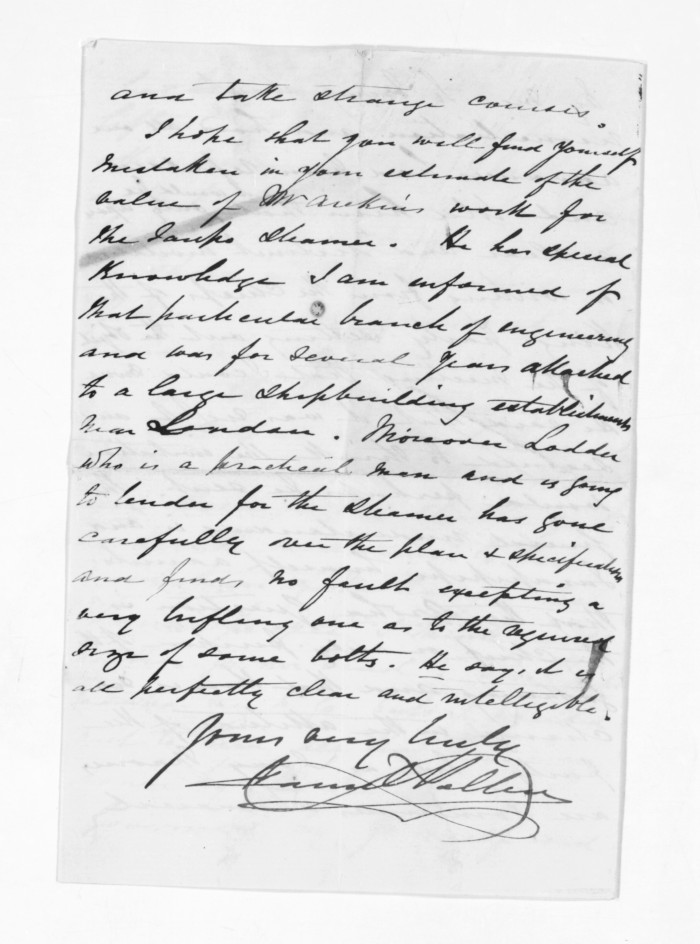 and take strange courses.
I hope that you will find yourself
mistaken in your estimate of the
value of Mr work for
the steamer. He has special
Knowledge I am informed of
that particular branch of engineering
and was for several years attached
to a large shipbuilding establishments
near London. Moreover Lodder
who is a practical man and is going
to tender for the steamer has gone
carefully over the plan & specifications
and finds no fault excepting a
very trifling one as to the required
size of some bolts. He says it is
all perfectly clear and intelligible.
Yours very truly